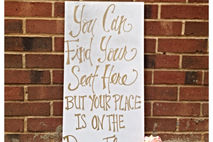 You Can
Find Your
Seat Here
BUT YOUR PLACE
IS ON THE